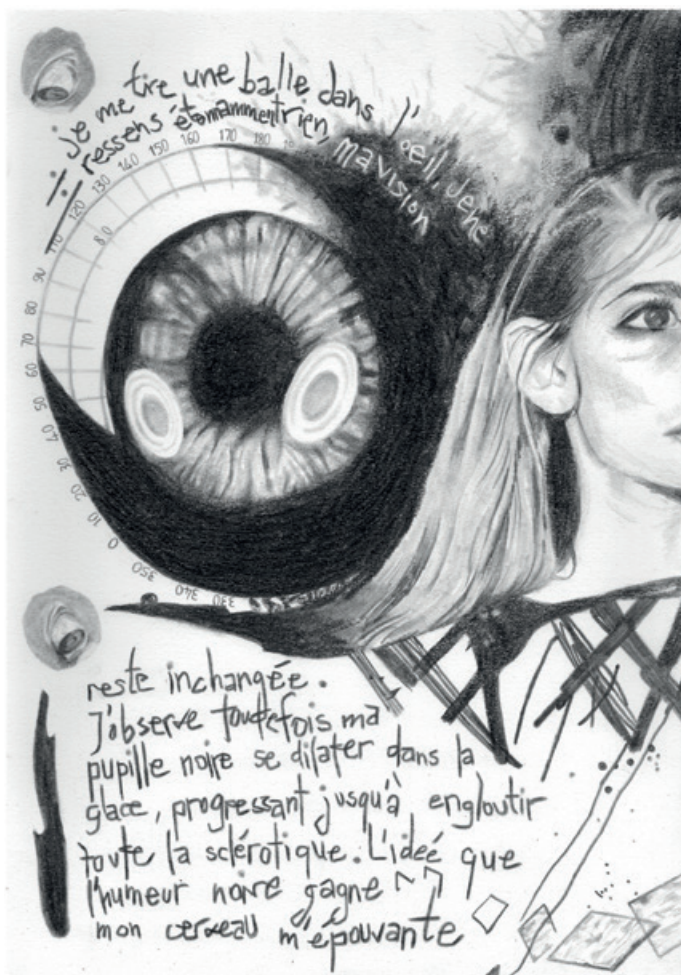 je me tire une balle dans l'oeil, je ne
ressens étonamment rien, ma vision
110 120 130 140 150 160 170 180
8.0
90
80
70
60
50
40
30
20
10
0
350
340
330
reste inchangée.
J'observe toutefois ma
pupille noire se dilater dans la
glace, progressant jusqu'à engloutir
toute la sclérotique. L'ideé que
l'humeur noire gagne
mon cerveau m'épouvante